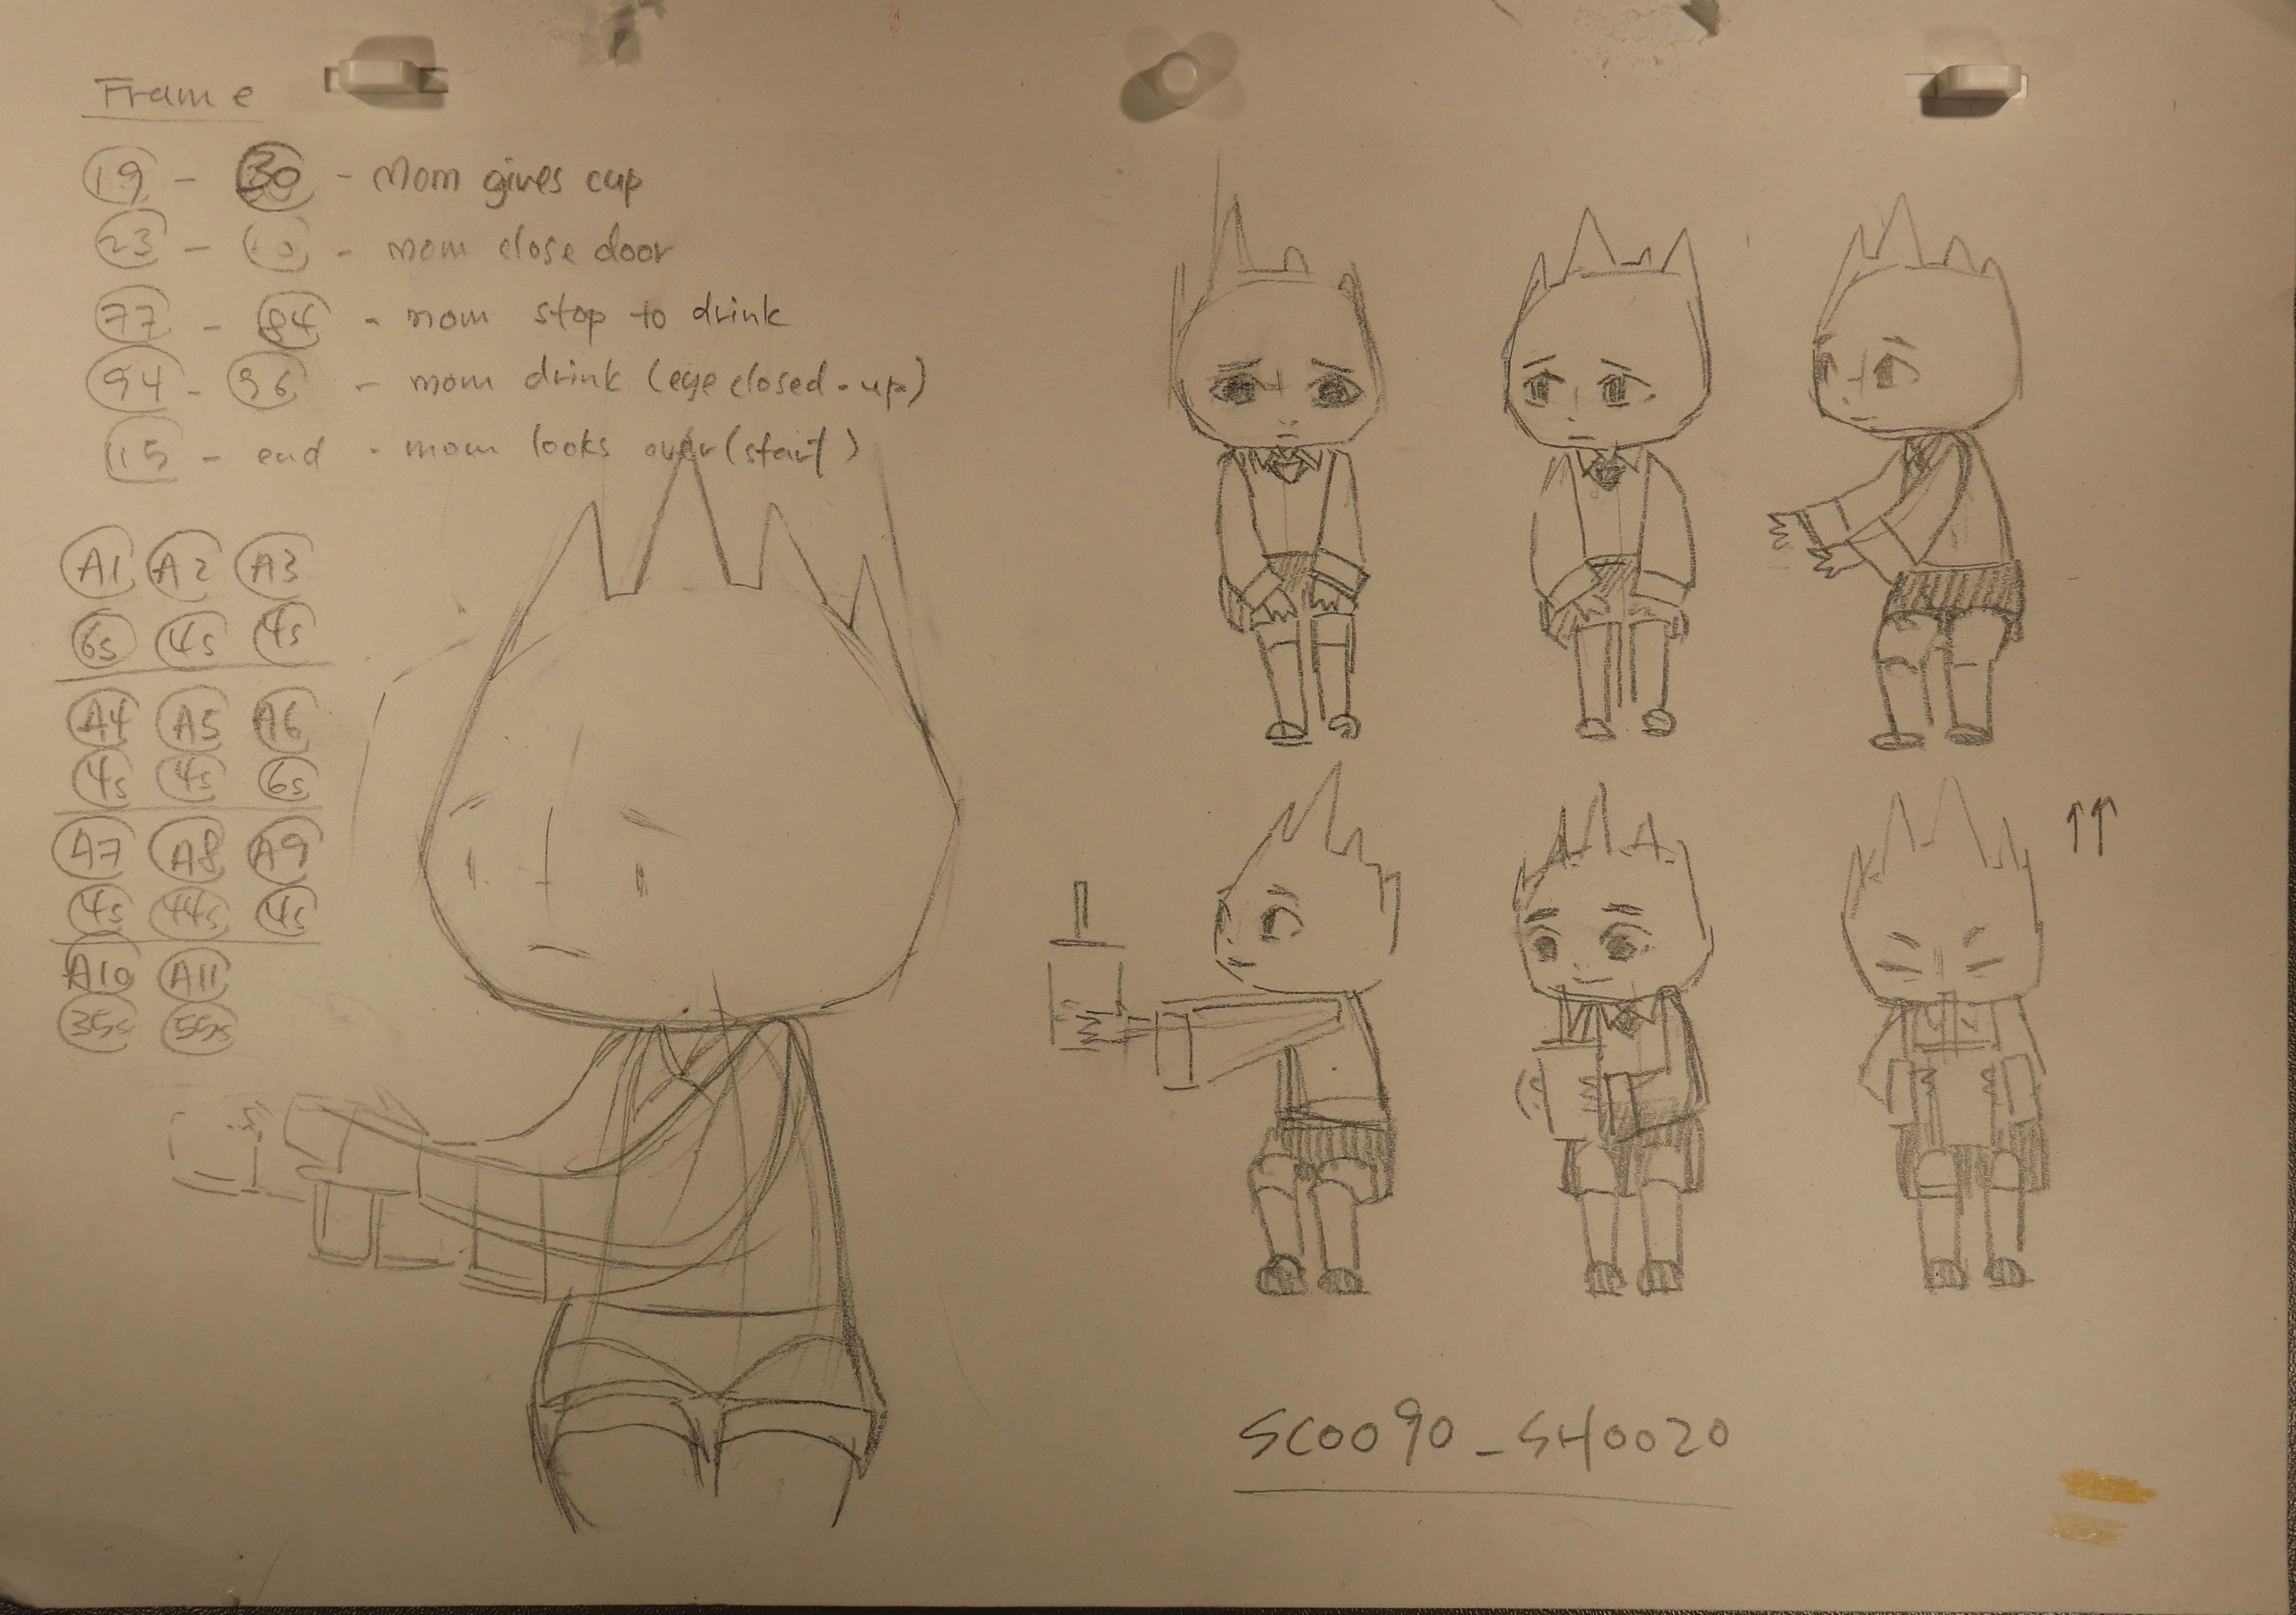 Frame
19 - 30 - Mom gives cup
23 - 10 - mom close door
77 - 84 - mom stop to drink
94 - 96 - mom drink (eye closed-up)
15 - end - mom looks over (start)
A1 A2 A3
6s 4s 4s
A4 A5 A6
4s 4s 6s
A7 A8 A9
4s 44s 4s
A10 A11
35s 55s
SC0090_SH0020